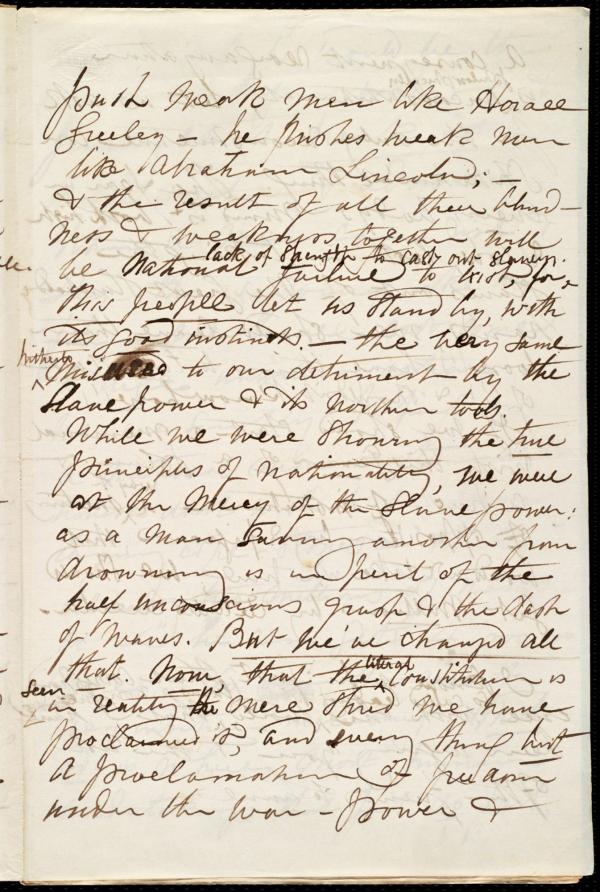 push weak men like Horace
Greeley – he pushes weak men
like Abraham Lincoln; –
& the result of all their blind-
ness & weakness together will
lack of strength to cast out slavery.
be national failure to exist, for,
this people let us stand by, with
its good instincts – the very same
hitherto
misused to our detriment by the
Slave power & its northern tools.
While we were showing the true
principles of nationality, we were
at the mercy of the slave power:
as a man saving another from
drowning is in peril of the
half unconscious grasp & the dash
of waves. But we've changed all
that. Now, that the literal Constitution is
seen
in reality the mere shred we have
proclaimed it, and every thing but
a proclamation of freedom
under the war-power &